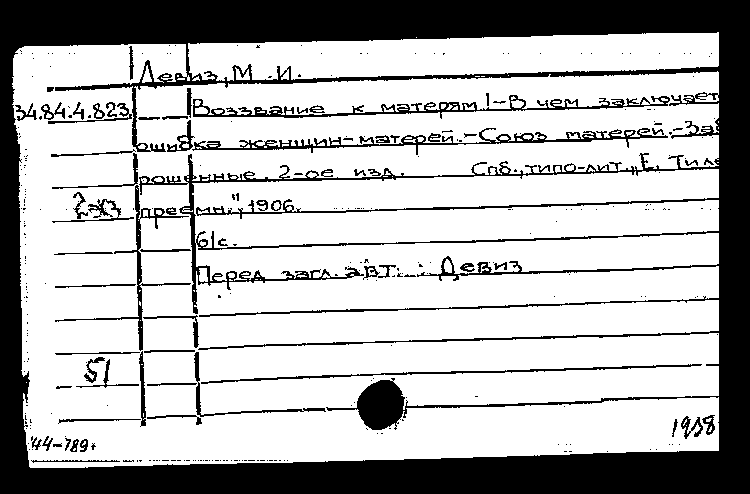 Девиз, М.И.
34.84.4.823 Воззвание к матерям!-В чем заключает
ошибка женщин-матерей.-Союз матерей.-Заб
рошенные. 2-ое изд. Спб., типо-лит. „Е. Тиле
2 экз преемн.", 1906.
61с.
Перед загл. авт. : Девиз
51
1938
44-789+